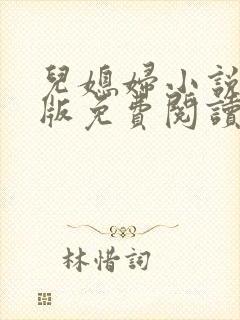 兒媳婦小說
版免費閱讀
林惜詞